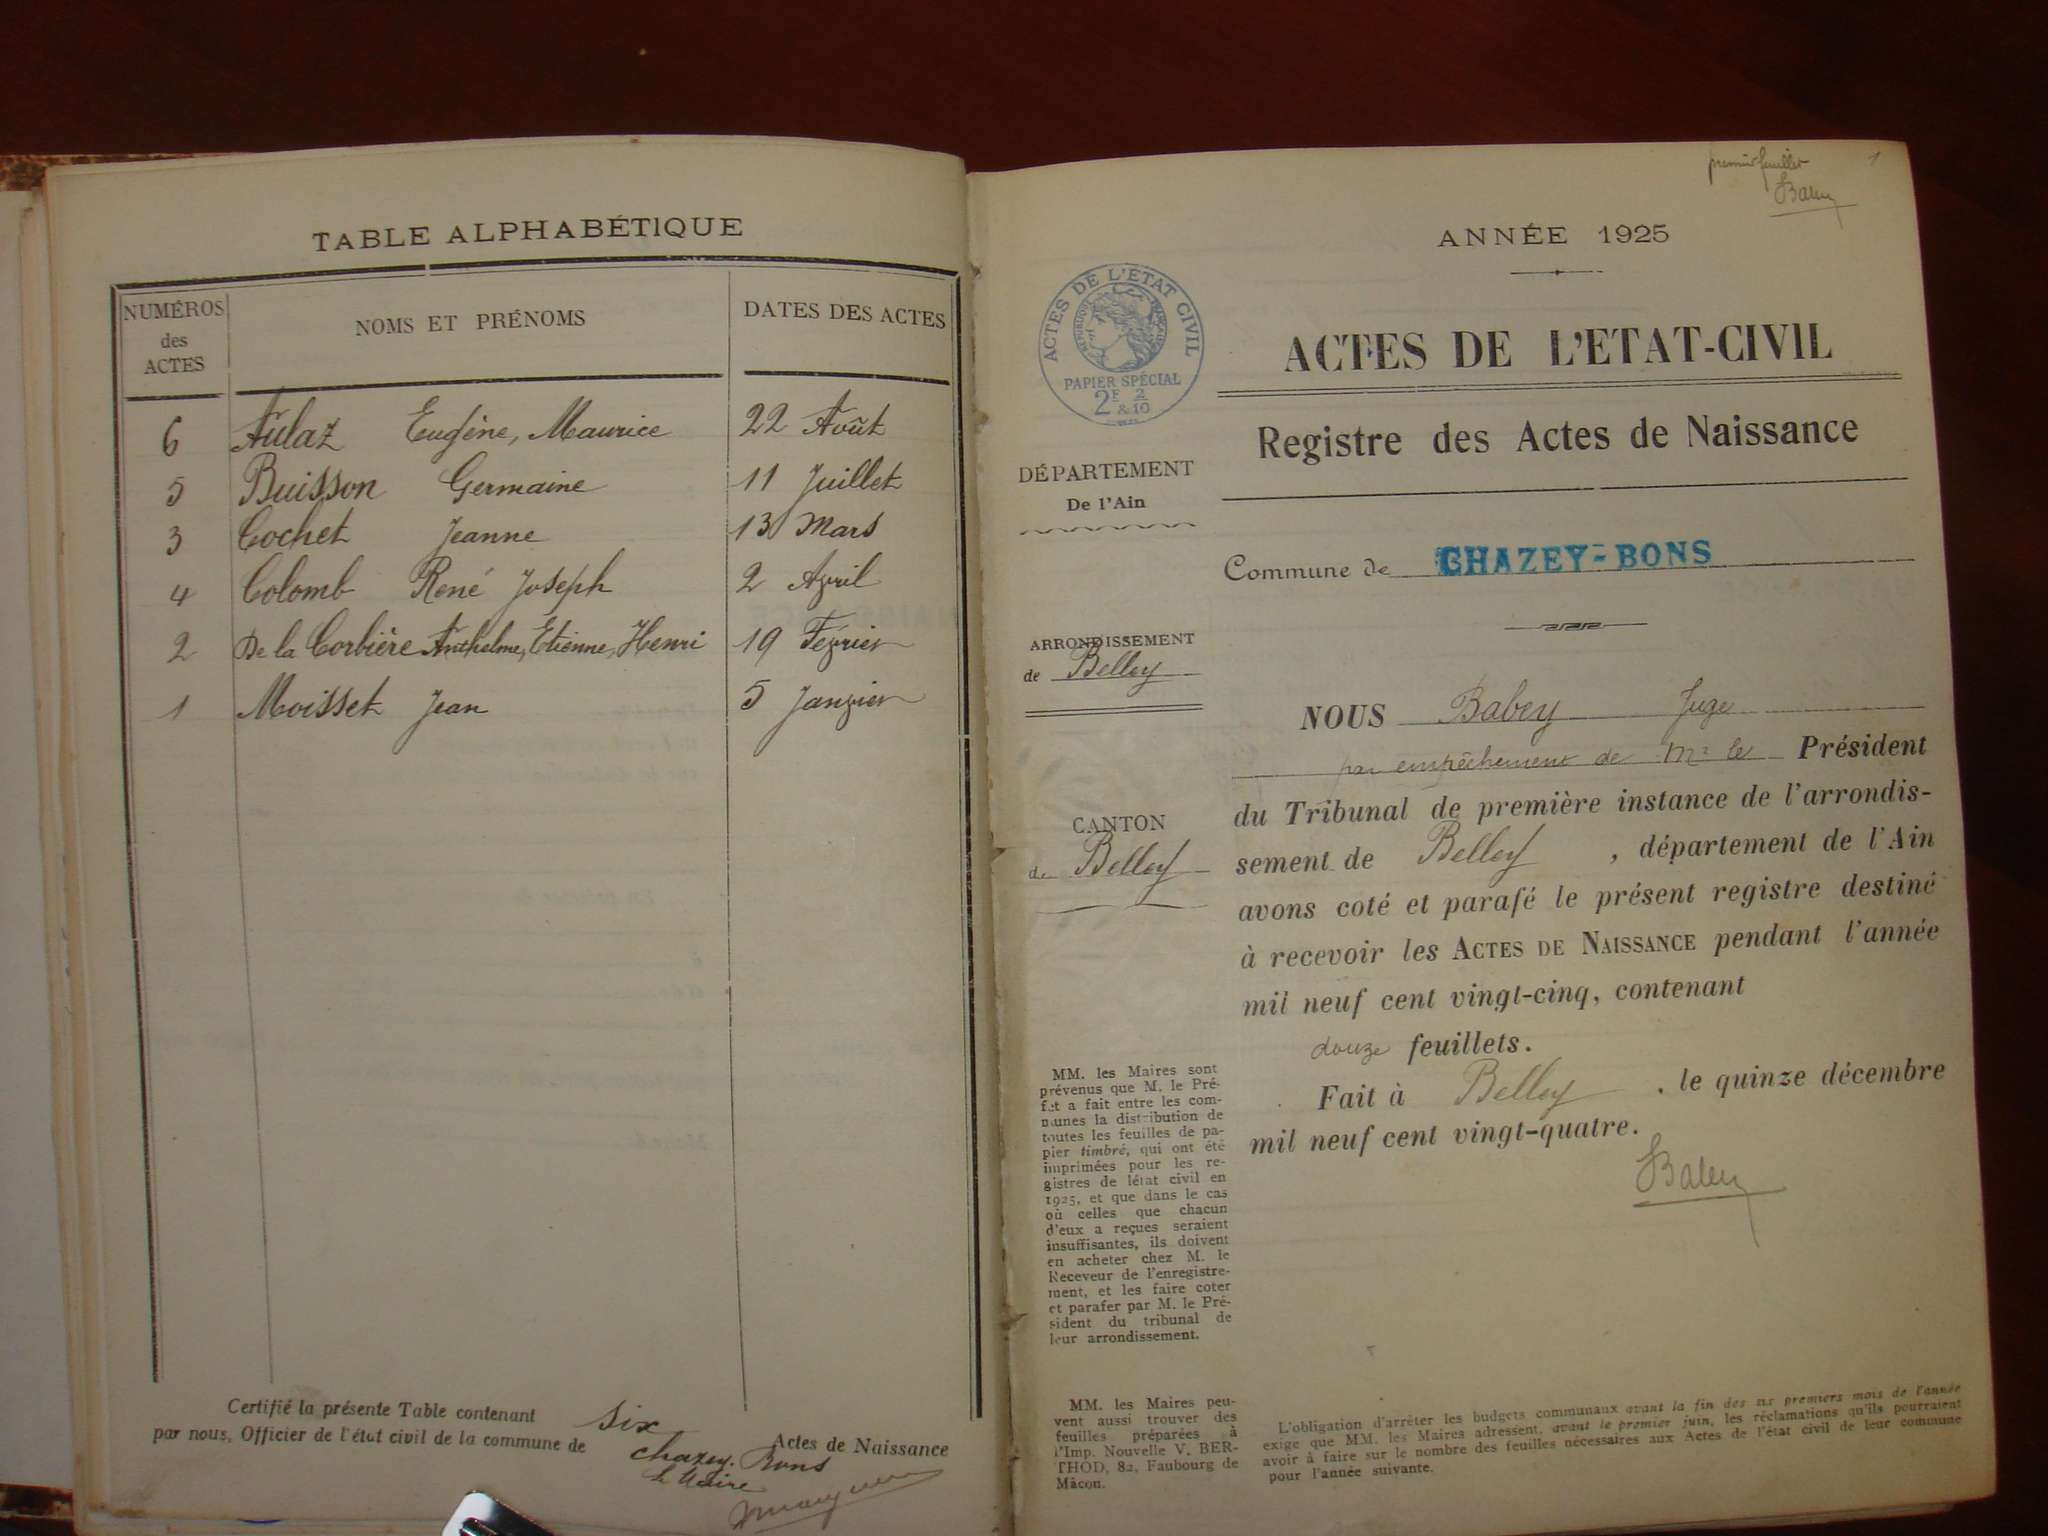 TABLE ALPHABÉTIQUE
NUMÉROS des ACTES
NOMS ET PRÉNOMS
DATES DES ACTES
6 Aulaz Eugène, Maurice 22 Août
5 Buisson Germaine 11 Juillet
3 Cochet Jeanne 13 Mars
4 Colomb René Joseph 2 Avril
2 De la Corbière Anthelme, Etienne, Henri 19 Février
1 Moisset Jean 5 Janvier
Certifié la présente Table contenant six Actes de Naissance
par nous, Officier de l'état civil de la commune de Chazey-Bons
le Maire
premier feuillet
1
Babey
ANNÉE 1925
ACTES DE L'ÉTAT CIVIL
RÉPUBLIQUE FRANÇAISE
PAPIER SPÉCIAL
2F & 2/10
ACTES DE L'ETAT-CIVIL
Registre des Actes de Naissance
DÉPARTEMENT
De l'Ain
Commune de CHAZEY-BONS
ARRONDISSEMENT
de Belley
CANTON
de Belley
NOUS Babey Juge
par empêchement de Mr le Président
du Tribunal de première instance de l'arrondis-
sement de Belley, département de l'Ain
avons coté et parafé le présent registre destiné
à recevoir les ACTES DE NAISSANCE pendant l'année
mil neuf cent vingt-cinq, contenant
douze feuillets.
Fait à Belley, le quinze décembre
mil neuf cent vingt-quatre.
Babey
MM. les Maires sont
prévenus que M. le Pré-
fet a fait entre les com-
munes la distribution de
toutes les feuilles de pa-
pier timbré, qui ont été
imprimées pour les re-
gistres de létat civil en
1925, et que dans le cas
où celles que chacun
d'eux a reçues seraient
insuffisantes, ils doivent
en acheter chez M. le
Receveur de l'enregistre-
ment, et les faire coter
et parafer par M. le Pré-
sident du tribunal de
leur arrondissement.
MM. les Maires peu-
vent aussi trouver des
feuilles préparées à
l'Imp. Nouvelle V. BER-
THOD, 82, Faubourg de
Mâcon.
L'obligation d'arrêter les budgets communaux avant la fin des six premiers mois de l'année
exige que MM. les Maires adressent, avant le premier juin, les réclamations qu'ils pourraient
avoir à faire sur le nombre des feuilles nécessaires aux Actes de l'état civil de leur commune
pour l'année suivante.